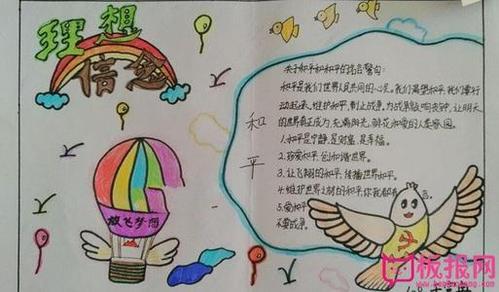 理想
信念
放飞梦想
和
平
关于和平和和平的名言警句:
和平是我们世界人民共同的心灵。我们渴望和平,我们拿行
动起来,维护和平,制止战争,为战争敲响丧钟,让明天
的世界真正成为,充满阳光,鲜花和爱的人类家园。
1.和平是宁静,是财富,是幸福。
2.珍爱和平,创和谐世界。
3.让飞翔的和平,传播世界和平。
4.维护世界之树的和平,你我都有
5.爱和平
不要战争。
板报网